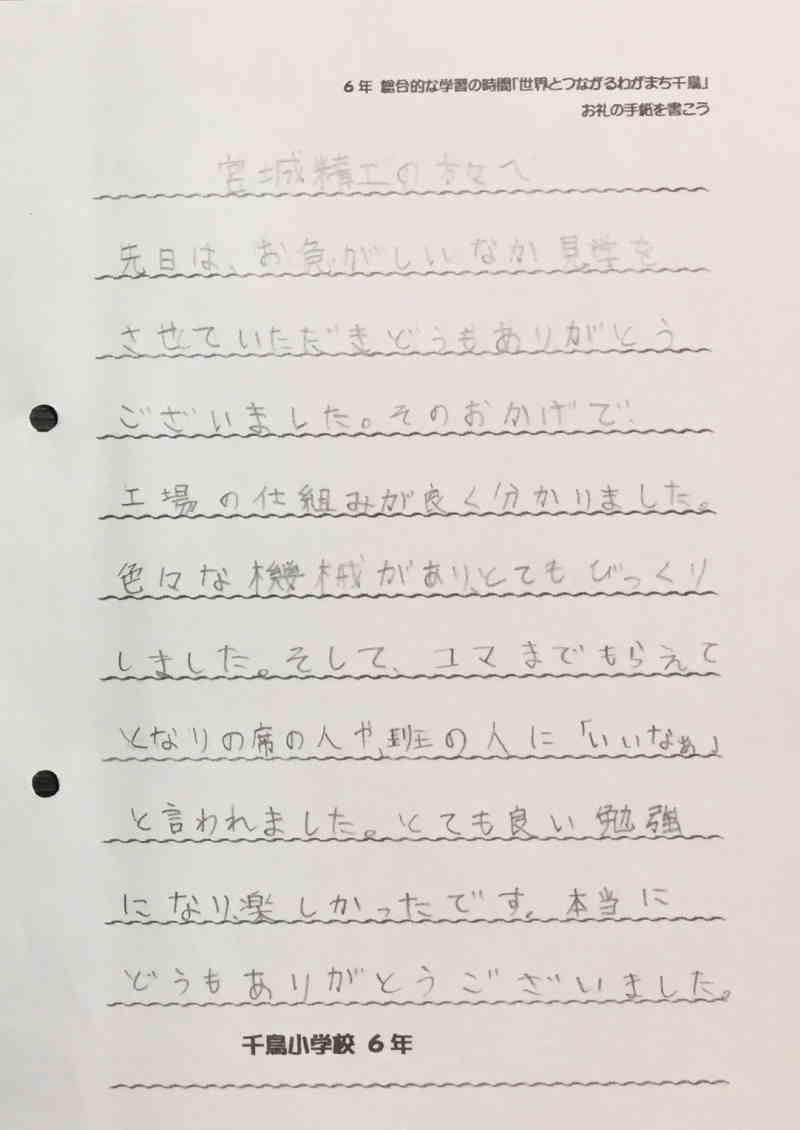 6年 総合的な学習の時間「世界とつながるわがまち千鳥」
お礼の手紙を書こう
宮城精工の方々へ
先日は、お急がしいなか見学を
させていただきどうもありがとう
ございました。そのおかげで
工場の仕組みが良く分かりました。
色々な機械があり、とてもびっくり
しました。そして、コマまでもらえて
となりの席の人や、班の人に「いいなぁ」
と言われました。とても良い勉強
になり、楽しかったです。本当に
どうもありがとうございました。
千鳥小学校 6年